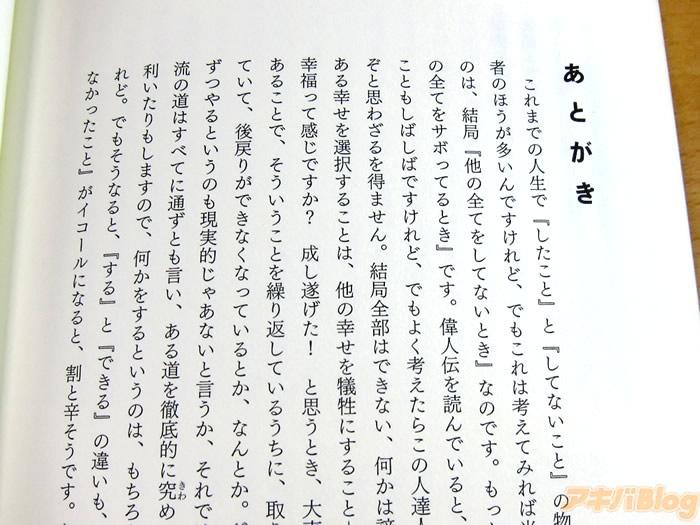 あとがき
これまでの人生で『したこと』と『してないこと』の物
者のほうが多いんですけれど、でもこれは考えてみれば当
のは、結局『他の全てをしてないとき』なのです。もっ
の全てをサボってるとき』です。偉人伝を読んでいると、
こともしばしばですけれど、でもよく考えたらこの人達人
ぞと思わざるを得ません。結局全部はできない、何かは諦
ある幸せを選択することは、他の幸せを犠牲にすること
幸福って感じですか? 成し遂げた! と思うとき、大事
あることで、そういうことを繰り返しているうちに、取り
ていて、後戻りができなくなっているとか、なんとか。
ずつやるというのも現実的じゃあないと言うか、それで
流の道はすべてに通ずとも言い、ある道を徹底的に究め
きわ
利いたりもしますので、何かをするというのは、もちろ
れど。でもそうなると、『する』と『できる』の違いも、
なかったこと』がイコールになると、割と辛そうです。
アキバBlog